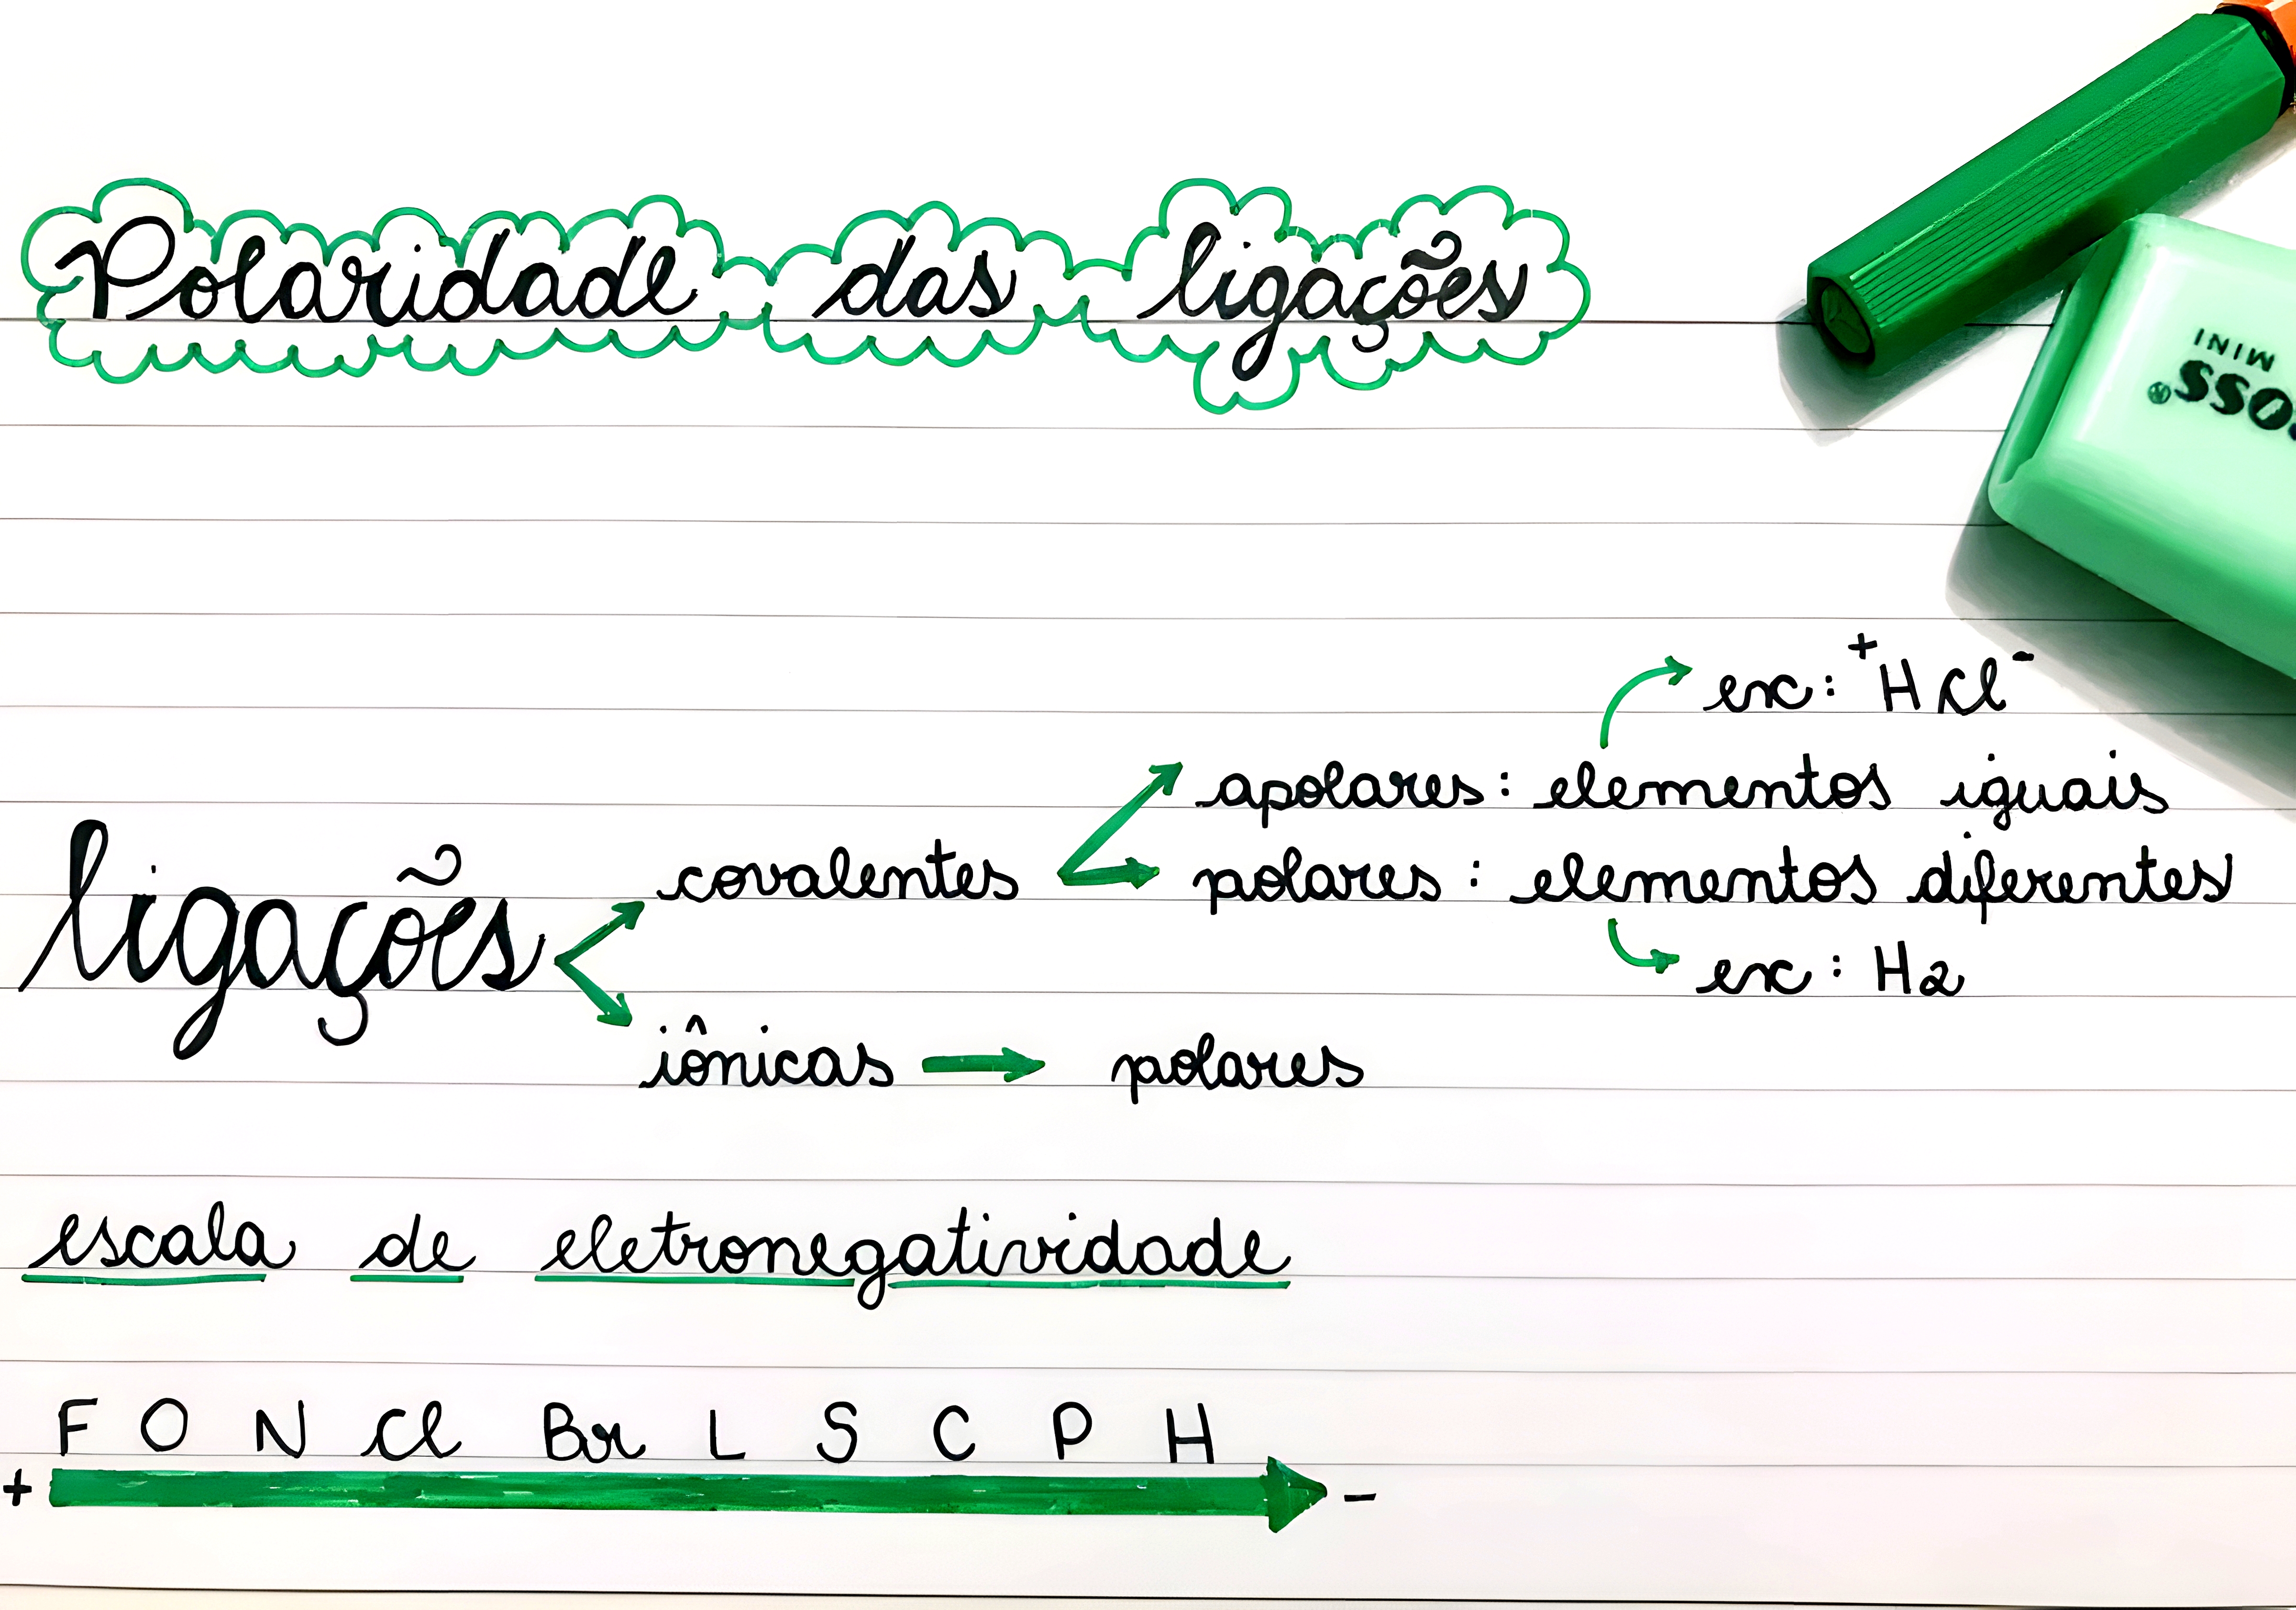 Polaridade das ligações
MINI
OSS®
ex: ⁺HCl⁻
apolares: elementos iguais
covalentes
polares: elementos diferentes
ligações
ex: H2
iônicas → polares
escala de eletronegatividade
F O N Cl Br L S C P H
+ -